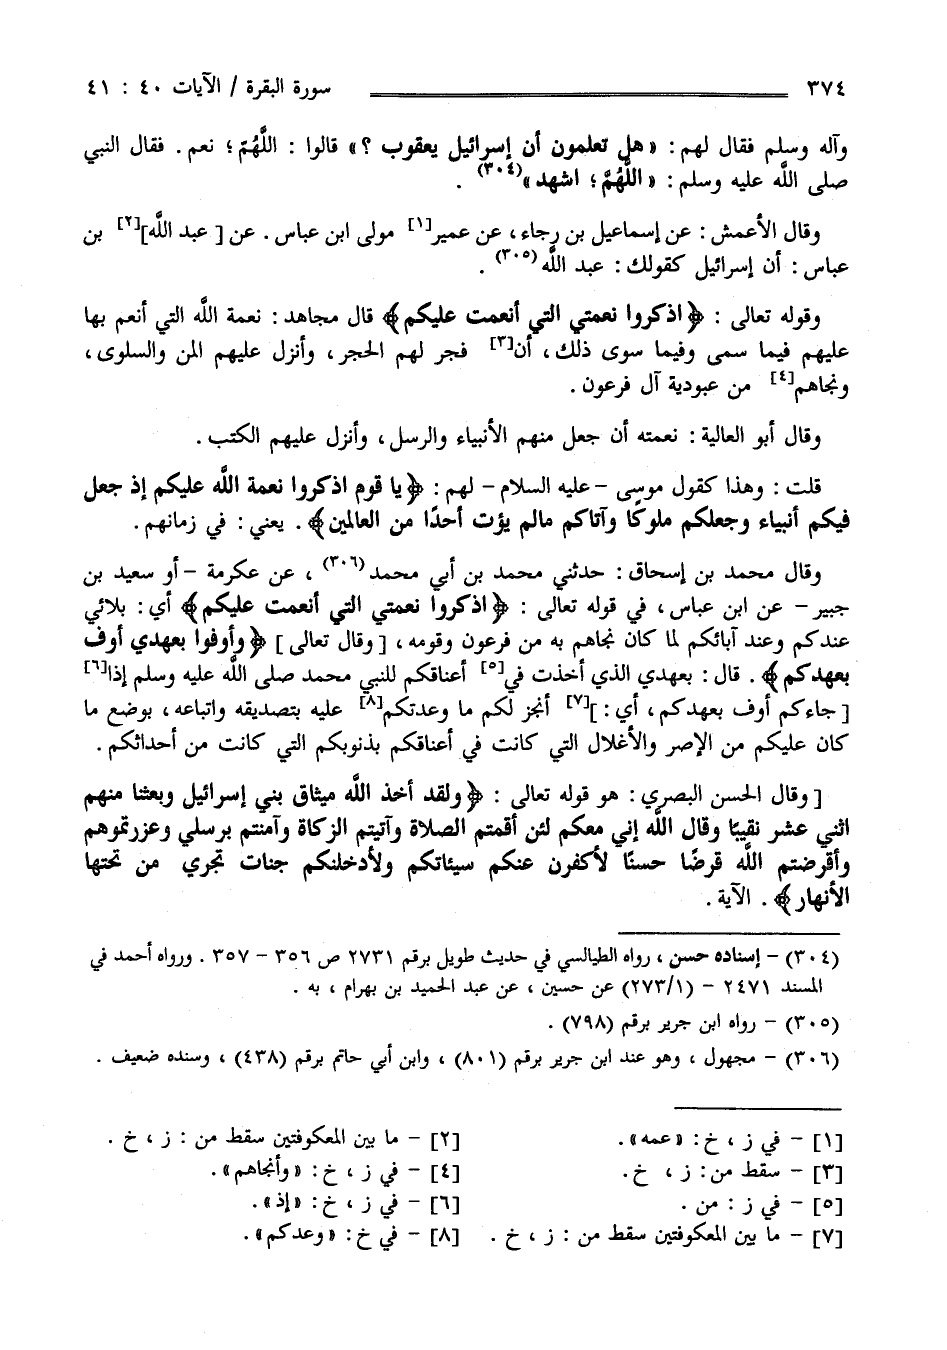 ٣٧٤ سورة البقرة / الآيات ٤٠ : ٤١
وآله وسلم فقال لهم : « هل تعلمون أن إسرائيل يعقوب ؟ » قالوا : اللَّهُمّ ؛ نعم . فقال النبي
صلى اللَّه عليه وسلم : « اللَّهُمَّ ؛ اشهد »(٣٠٤) .
وقال الأعمش : عن إسماعيل بن رجاء ، عن عمير[١] مولى ابن عباس . عن [ عبد اللَّه][٢] بن
عباس : أن إسرائيل كقولك : عبد اللَّه(٣٠٥) .
وقوله تعالى : ﴿ اذكروا نعمتي التي أنعمت عليكم ﴾ قال مجاهد : نعمة اللَّه التي أنعم بها
عليهم فيما سمى وفيما سوى ذلك ، أن[٣] فجر لهم الحجر ، وأنزل عليهم المن والسلوى ،
ونجاهم[٤] من عبودية آل فرعون .
وقال أبو العالية : نعمته أن جعل منهم الأنبياء والرسل ، وأنزل عليهم الكتب .
قلت : وهذا كقول موسى – عليه السلام – لهم : ﴿ يا قوم اذكروا نعمة اللَّه عليكم إذ جعل
فيكم أنبياء وجعلكم ملوكًا وآتاكم مالم يؤت أحدًا من العالمين ﴾ . يعني : في زمانهم .
وقال محمد بن إسحاق : حدثني محمد بن أبي محمد(٣٠٦) ، عن عكرمة – أو سعيد بن
جبير – عن ابن عباس ، في قوله تعالى : ﴿ اذكروا نعمتي التي أنعمت عليكم ﴾ أي : بلائي
عندكم وعند آبائكم لما كان نجاهم به من فرعون وقومه ، [ وقال تعالى ] ﴿ وأوفوا بعهدي أوف
بعهدكم ﴾ . قال : بعهدي الذي أخذت في[٥] أعناقكم للنبي محمد صلى اللَّه عليه وسلم إذا[٦]
[ جاءكم أوف بعهدكم ، أي : ][٧] أنجز لكم ما وعدتكم[٨] عليه بتصديقه واتباعه ، بوضع ما
كان عليكم من الإصر والأغلال التي كانت في أعناقكم بذنوبكم التي كانت من أحداثكم .
[ وقال الحسن البصري : هو قوله تعالى : ﴿ ولقد أخذ اللَّه ميثاق بني إسرائيل وبعثنا منهم
اثني عشر نقيبًا وقال اللَّه إني معكم لئن أقمتم الصلاة وآتيتم الزكاة وآمنتم برسلي وعزرتموهم
وأقرضتم اللَّه قرضًا حسنًا لأكفرن عنكم سيئاتكم ولأدخلنكم جنات تجري من تحتها
الأنهار ﴾ . الآية .
(٣٠٤) – إسناده حسن ، رواه الطيالسي في حديث طويل برقم ٢٧٣١ ص ٣٥٦ – ٣٥٧ . ورواه أحمد في
المسند ٢٤٧١ – (٢٧٣/١) عن حسين ، عن عبد الحميد بن بهرام ، به .
(٣٠٥) – رواه ابن جرير برقم (٧٩٨) .
(٣٠٦) – مجهول ، وهو عند ابن جرير برقم (٨٠١) ، وابن أبي حاتم برقم (٤٣٨) ، وسنده ضعيف .
[١] – في ز ، خ : « عمه » . [٢] – ما بين المعكوفتين سقط من : ز ، خ .
[٣] – سقط من : ز ، خ . [٤] – في ز ، خ : « وأنجاهم » .
[٥] – في ز : من . [٦] – في ز ، خ : « إذ » .
[٧] – ما بين المعكوفتين سقط من : ز ، خ . [٨] – في خ : « وعدكم » .